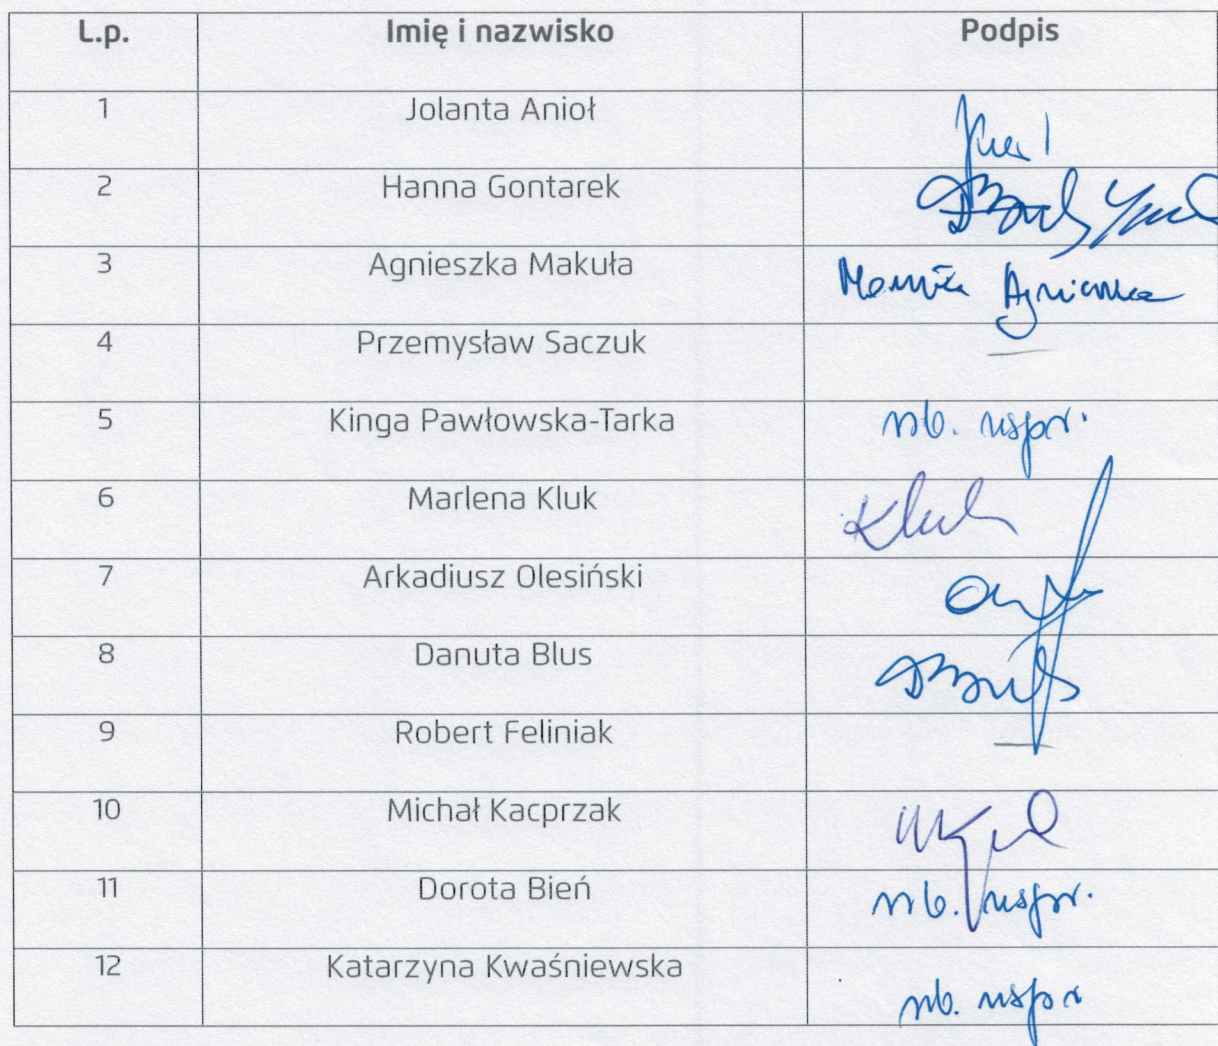 L.p. Imię i nazwisko Podpis
1 Jolanta Anioł
2 Hanna Gontarek
3 Agnieszka Makuła Makuła Agnieszka
4 Przemysław Saczuk —
5 Kinga Pawłowska-Tarka nb. uspr.
6 Marlena Kluk Kluk
7 Arkadiusz Olesiński
8 Danuta Blus
9 Robert Feliniak —
10 Michał Kacprzak
11 Dorota Bień nb. uspr.
12 Katarzyna Kwaśniewska nb. uspr